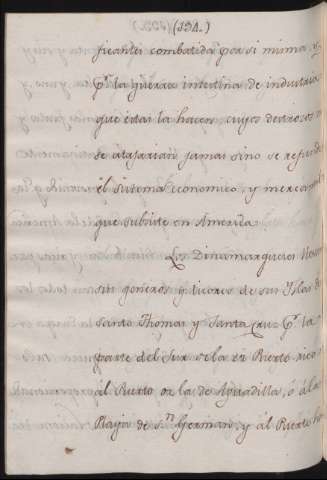 (194.)
ficantes combatida por si misma, y
pr. la guerra intestina de industria
que estas la hacen, cuyos destrosos
se atajarian jamas sino se refunde
el sistema economico, y mercantil
que subsiste en America.
Los Dinamarqueses
sus generos y licores de sus Yslas de
Santo Thomas y Santa Cruz pr. la
parte del Sur de la de Puerto rico
ál Puerto de la de Aguadilla, ó á la
Playa de Sn. German, y ál Puerto